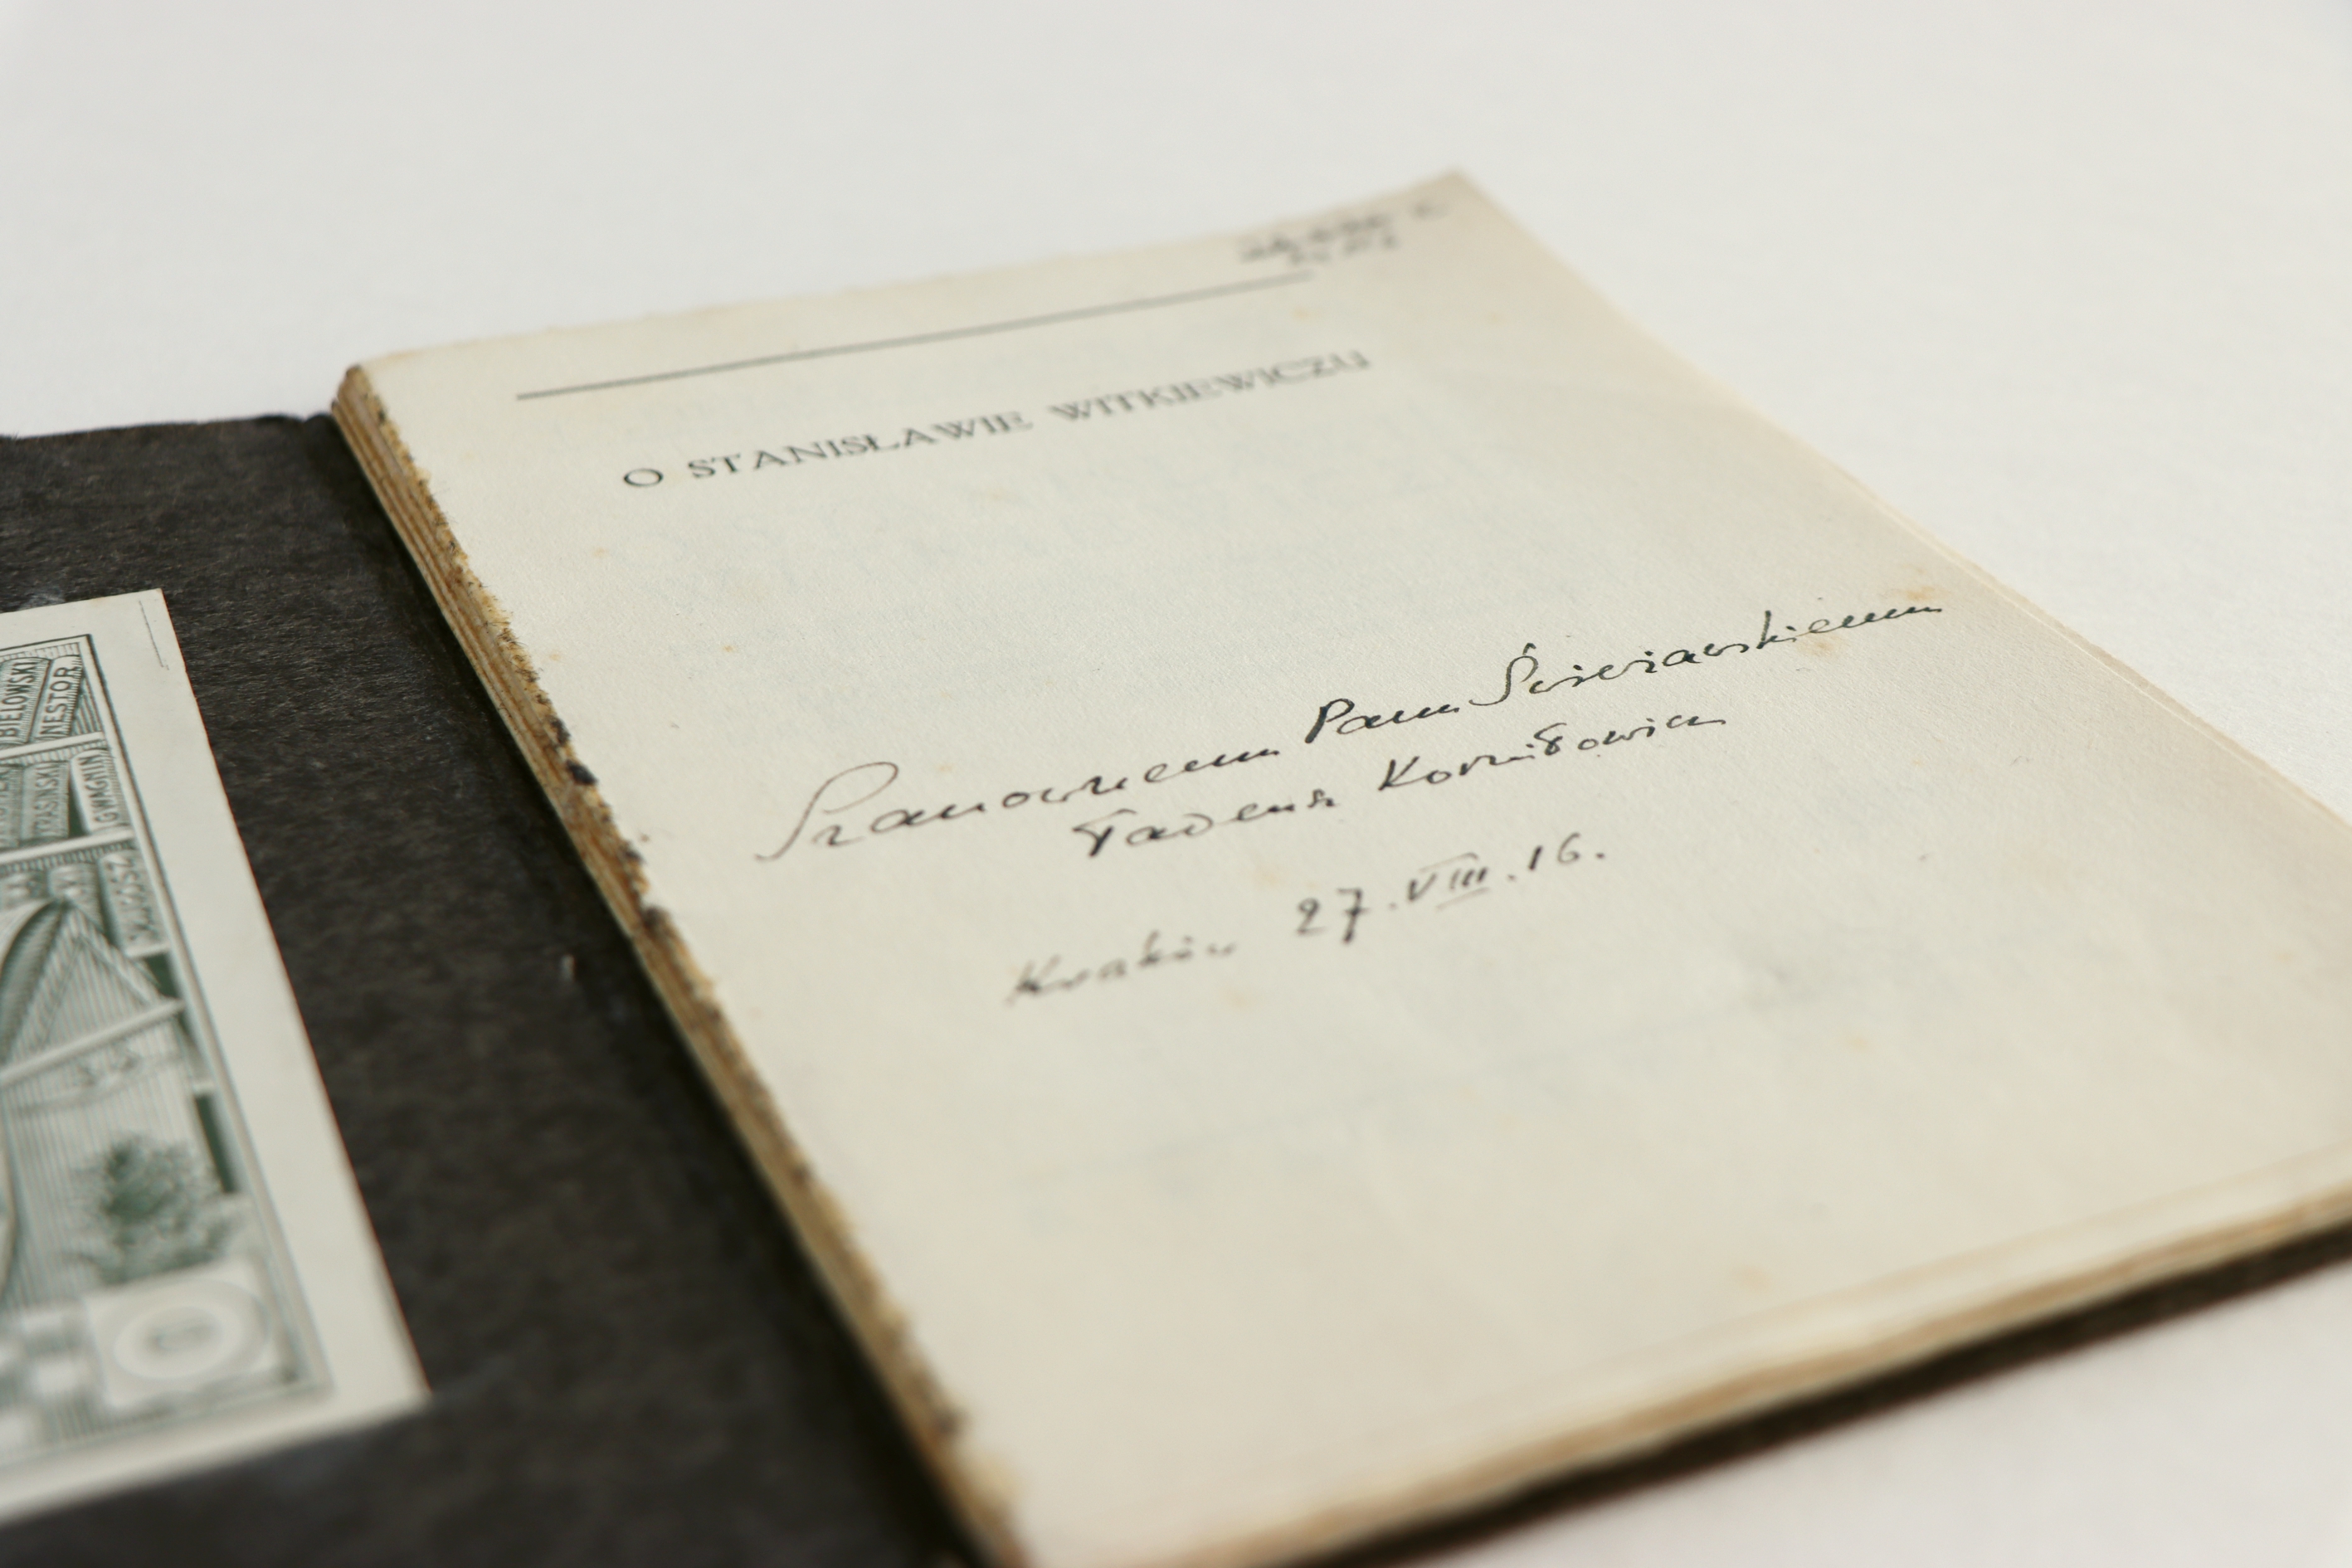 BIELOWSKI
NIESTOR
KRASIŃSKI
GWAGNIN
O STANISŁAWIE WITKIEWICZU
Szanownemu Panu Świerzawskiemu
Tadeusz Korniłowicz
Kraków 27.VIII.16.